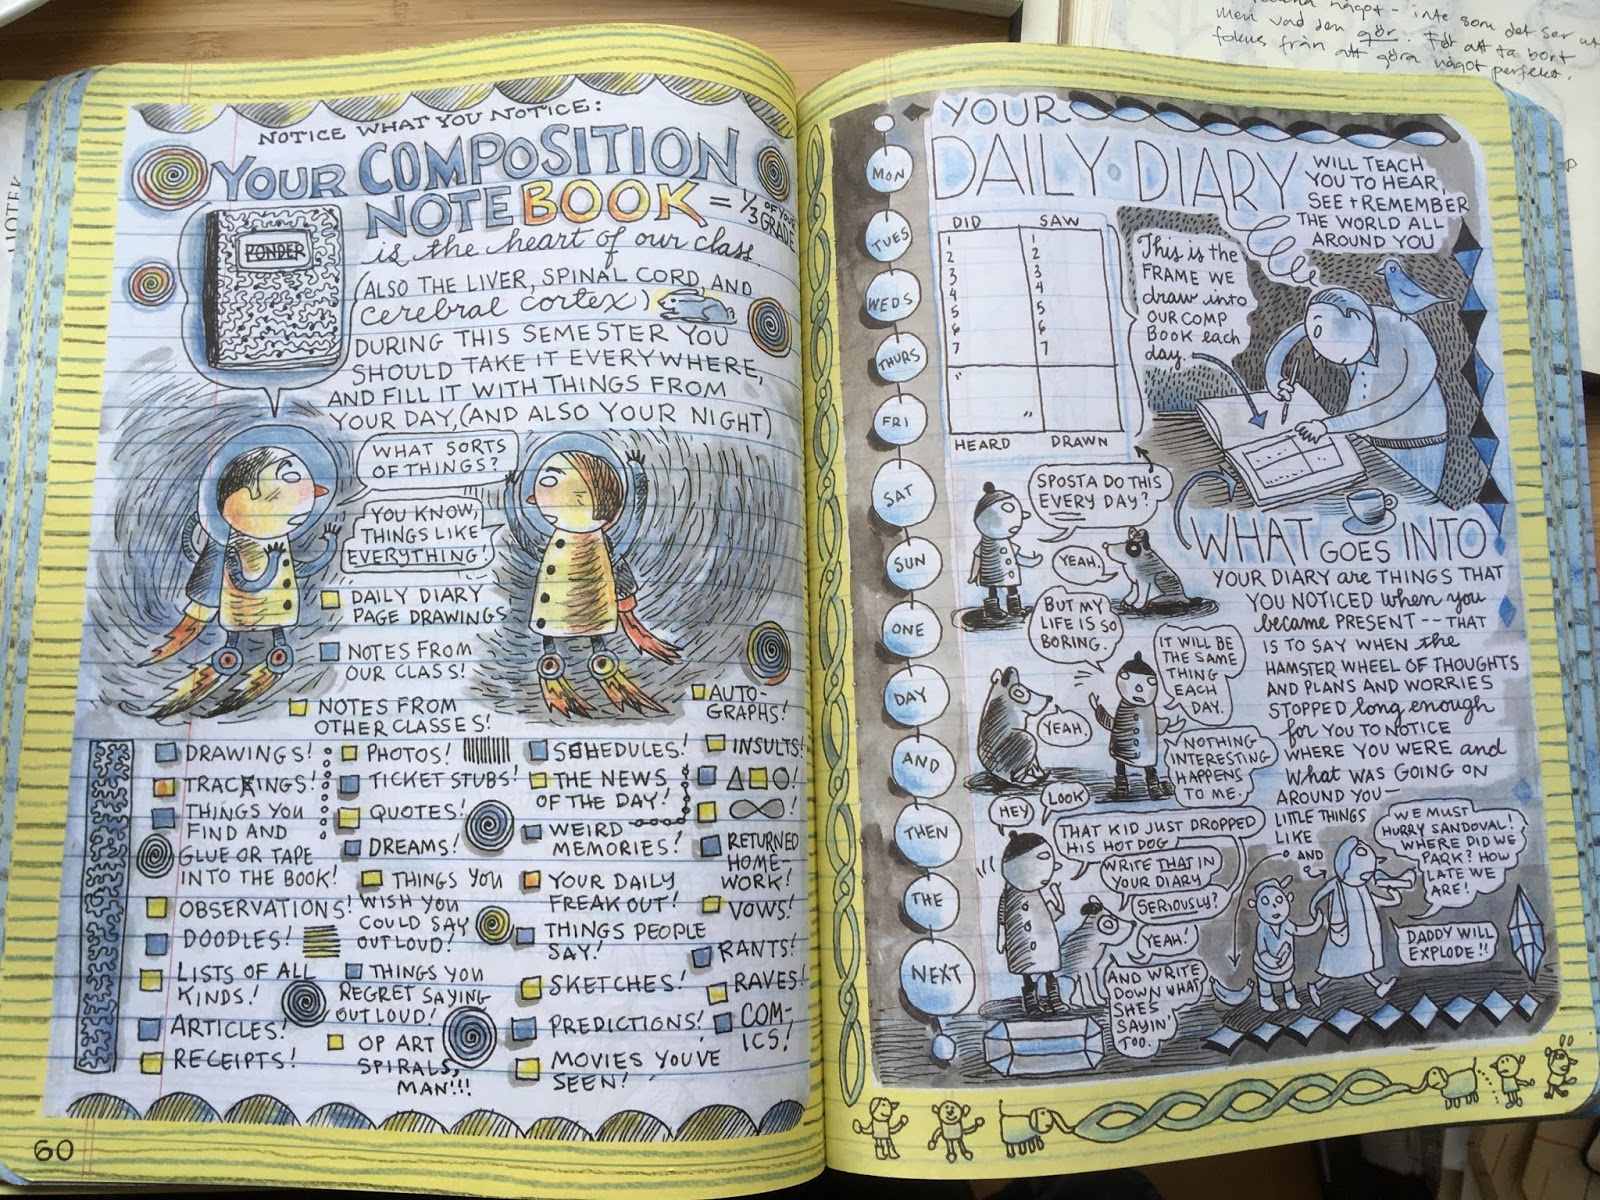 NOTICE WHAT YOU NOTICE:
YOUR COMPOSITION
NOTEBOOK = 1/3 OF YOUR GRADE
is the heart of our class.
(ALSO THE LIVER, SPINAL CORD, AND
cerebral cortex)
DURING THIS SEMESTER YOU
SHOULD TAKE IT EVERYWHERE,
AND FILL IT WITH THINGS FROM
YOUR DAY, (AND ALSO YOUR NIGHT)
PONDER
WHAT SORTS
OF THINGS?
YOU KNOW,
THINGS LIKE
EVERYTHING!
DAILY DIARY
PAGE DRAWINGS
NOTES FROM
OUR CLASS!
NOTES FROM
OTHER CLASSES!
DRAWINGS!
TRACKINGS!
THINGS YOU
FIND AND
GLUE OR TAPE
INTO THE BOOK!
OBSERVATIONS!
DOODLES!
LISTS OF ALL
KINDS!
ARTICLES!
RECEIPTS!
PHOTOS!
TICKET STUBS!
QUOTES!
DREAMS!
THINGS YOU
WISH YOU
COULD SAY
OUT LOUD!
THINGS YOU
REGRET SAYING
OUT LOUD!
OP ART
SPIRALS,
MAN!!!
SCHEDULES!
THE NEWS
OF THE DAY!
WEIRD
MEMORIES!
YOUR DAILY
FREAK OUT!
THINGS PEOPLE
SAY!
SKETCHES!
PREDICTIONS!
MOVIES YOU'VE
SEEN!
AUTO-
GRAPHS!
INSULTS!
△□○!
∞!
RETURNED
HOME-
WORK!
VOWS!
RANTS!
RAVES!
COM-
ICS!
60
MON
TUES
WEDS
THURS
FRI
SAT
SUN
ONE
DAY
AND
THEN
THE
NEXT
YOUR
DAILY DIARY
WILL TEACH
YOU TO HEAR,
SEE + REMEMBER
THE WORLD ALL
AROUND YOU
DID SAW
1 1
2 2
3 3
4 4
5 5
6 6
7 7
" "
HEARD DRAWN
This is the
FRAME WE
draw into
OUR COMP
BOOK each
day.
SPOSTA DO THIS
EVERY DAY?
YEAH.
BUT MY
LIFE IS SO
BORING.
YEAH.
IT WILL BE
THE SAME
THING
EACH
DAY.
NOTHING
INTERESTING
HAPPENS
TO ME.
HEY
LOOK
THAT KID JUST DROPPED
HIS HOT DOG
WRITE THAT IN
YOUR DIARY
SERIOUSLY?
YEAH!
AND WRITE
DOWN WHAT
SHES
SAYIN'
TOO.
WHAT GOES INTO
YOUR DIARY are THINGS THAT
YOU NOTICED when you
became PRESENT -- THAT
IS TO SAY WHEN the
HAMSTER WHEEL OF THOUGHTS
AND PLANS AND WORRIES
STOPPED long enough
for YOU TO NOTICE
WHERE YOU WERE and
What WAS GOING ON
AROUND YOU—
LITTLE THINGS
LIKE
AND
WE MUST
HURRY SANDOVAL!
WHERE DID WE
PARK? HOW
LATE WE
ARE!
DADDY WILL
EXPLODE!!
något - inte som det ser ut
men vad den gör. För att ta bort
fokus från att göra något perfekt.